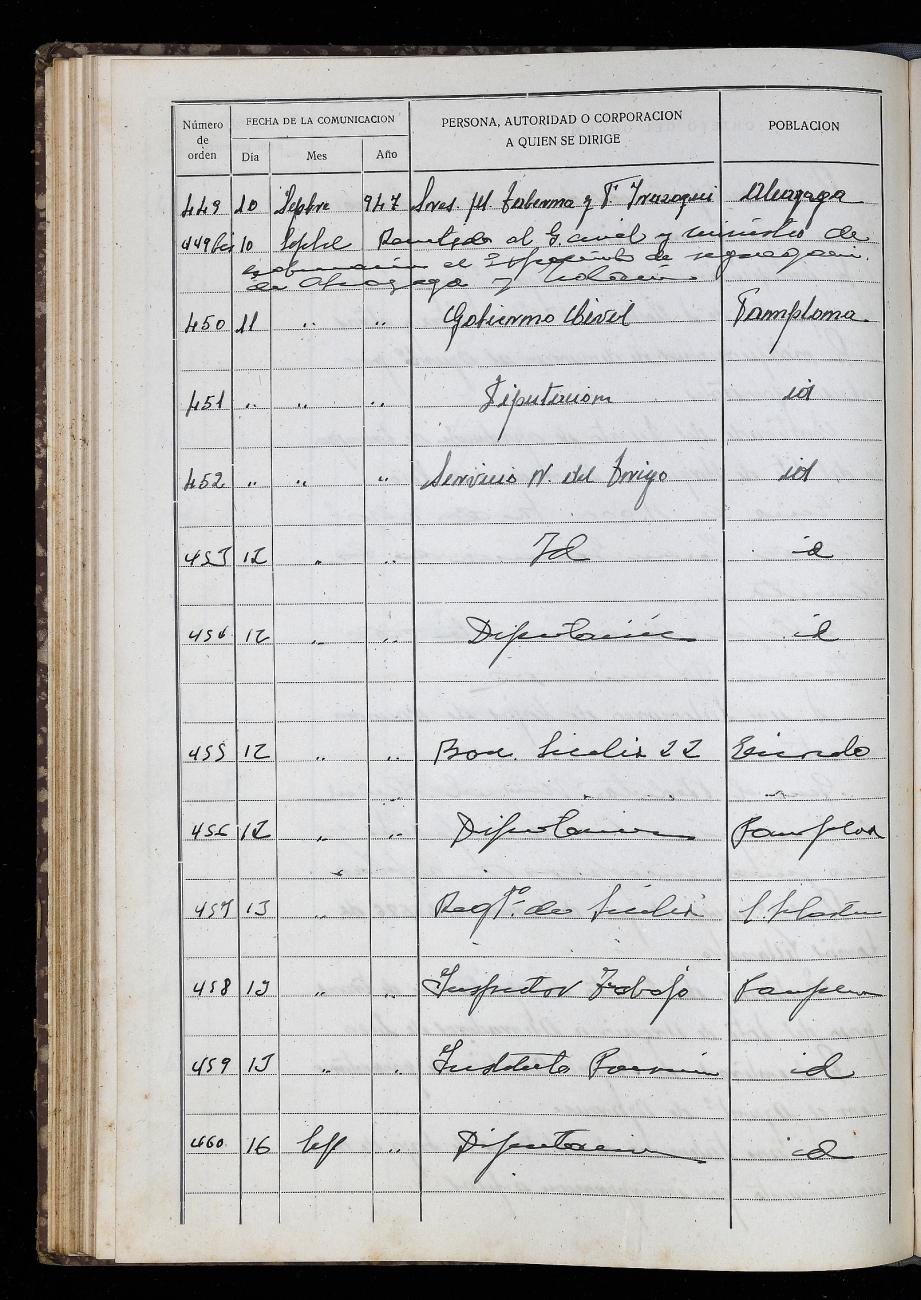 Número de orden FECHA DE LA COMUNICACION PERSONA, AUTORIDAD O CORPORACION A QUIEN SE DIRIGE POBLACION
Día Mes Año
449 10 Sepbre 947 Sres. M. Taberna y F. Irazoqui
449 bis 10 Sepbre Remitido al G. civil y ministro de
gobernación el Expediente de
de y
450 11 " " Gobierno Civil Pamplona
451 " " " Diputacion id
452 " " " Servicio N. del Trigo id
453 12 " " Id id
454 12 " " Diputación id
455 12 " " Bon. Sicilia 22
456 12 " " Diputacion Pamplona
457 13 " " Regto. de Sicilia
458 13 " " Inspector Trabajo Pamplona
459 13 " " Instituto id
460 16 " Diputacion id